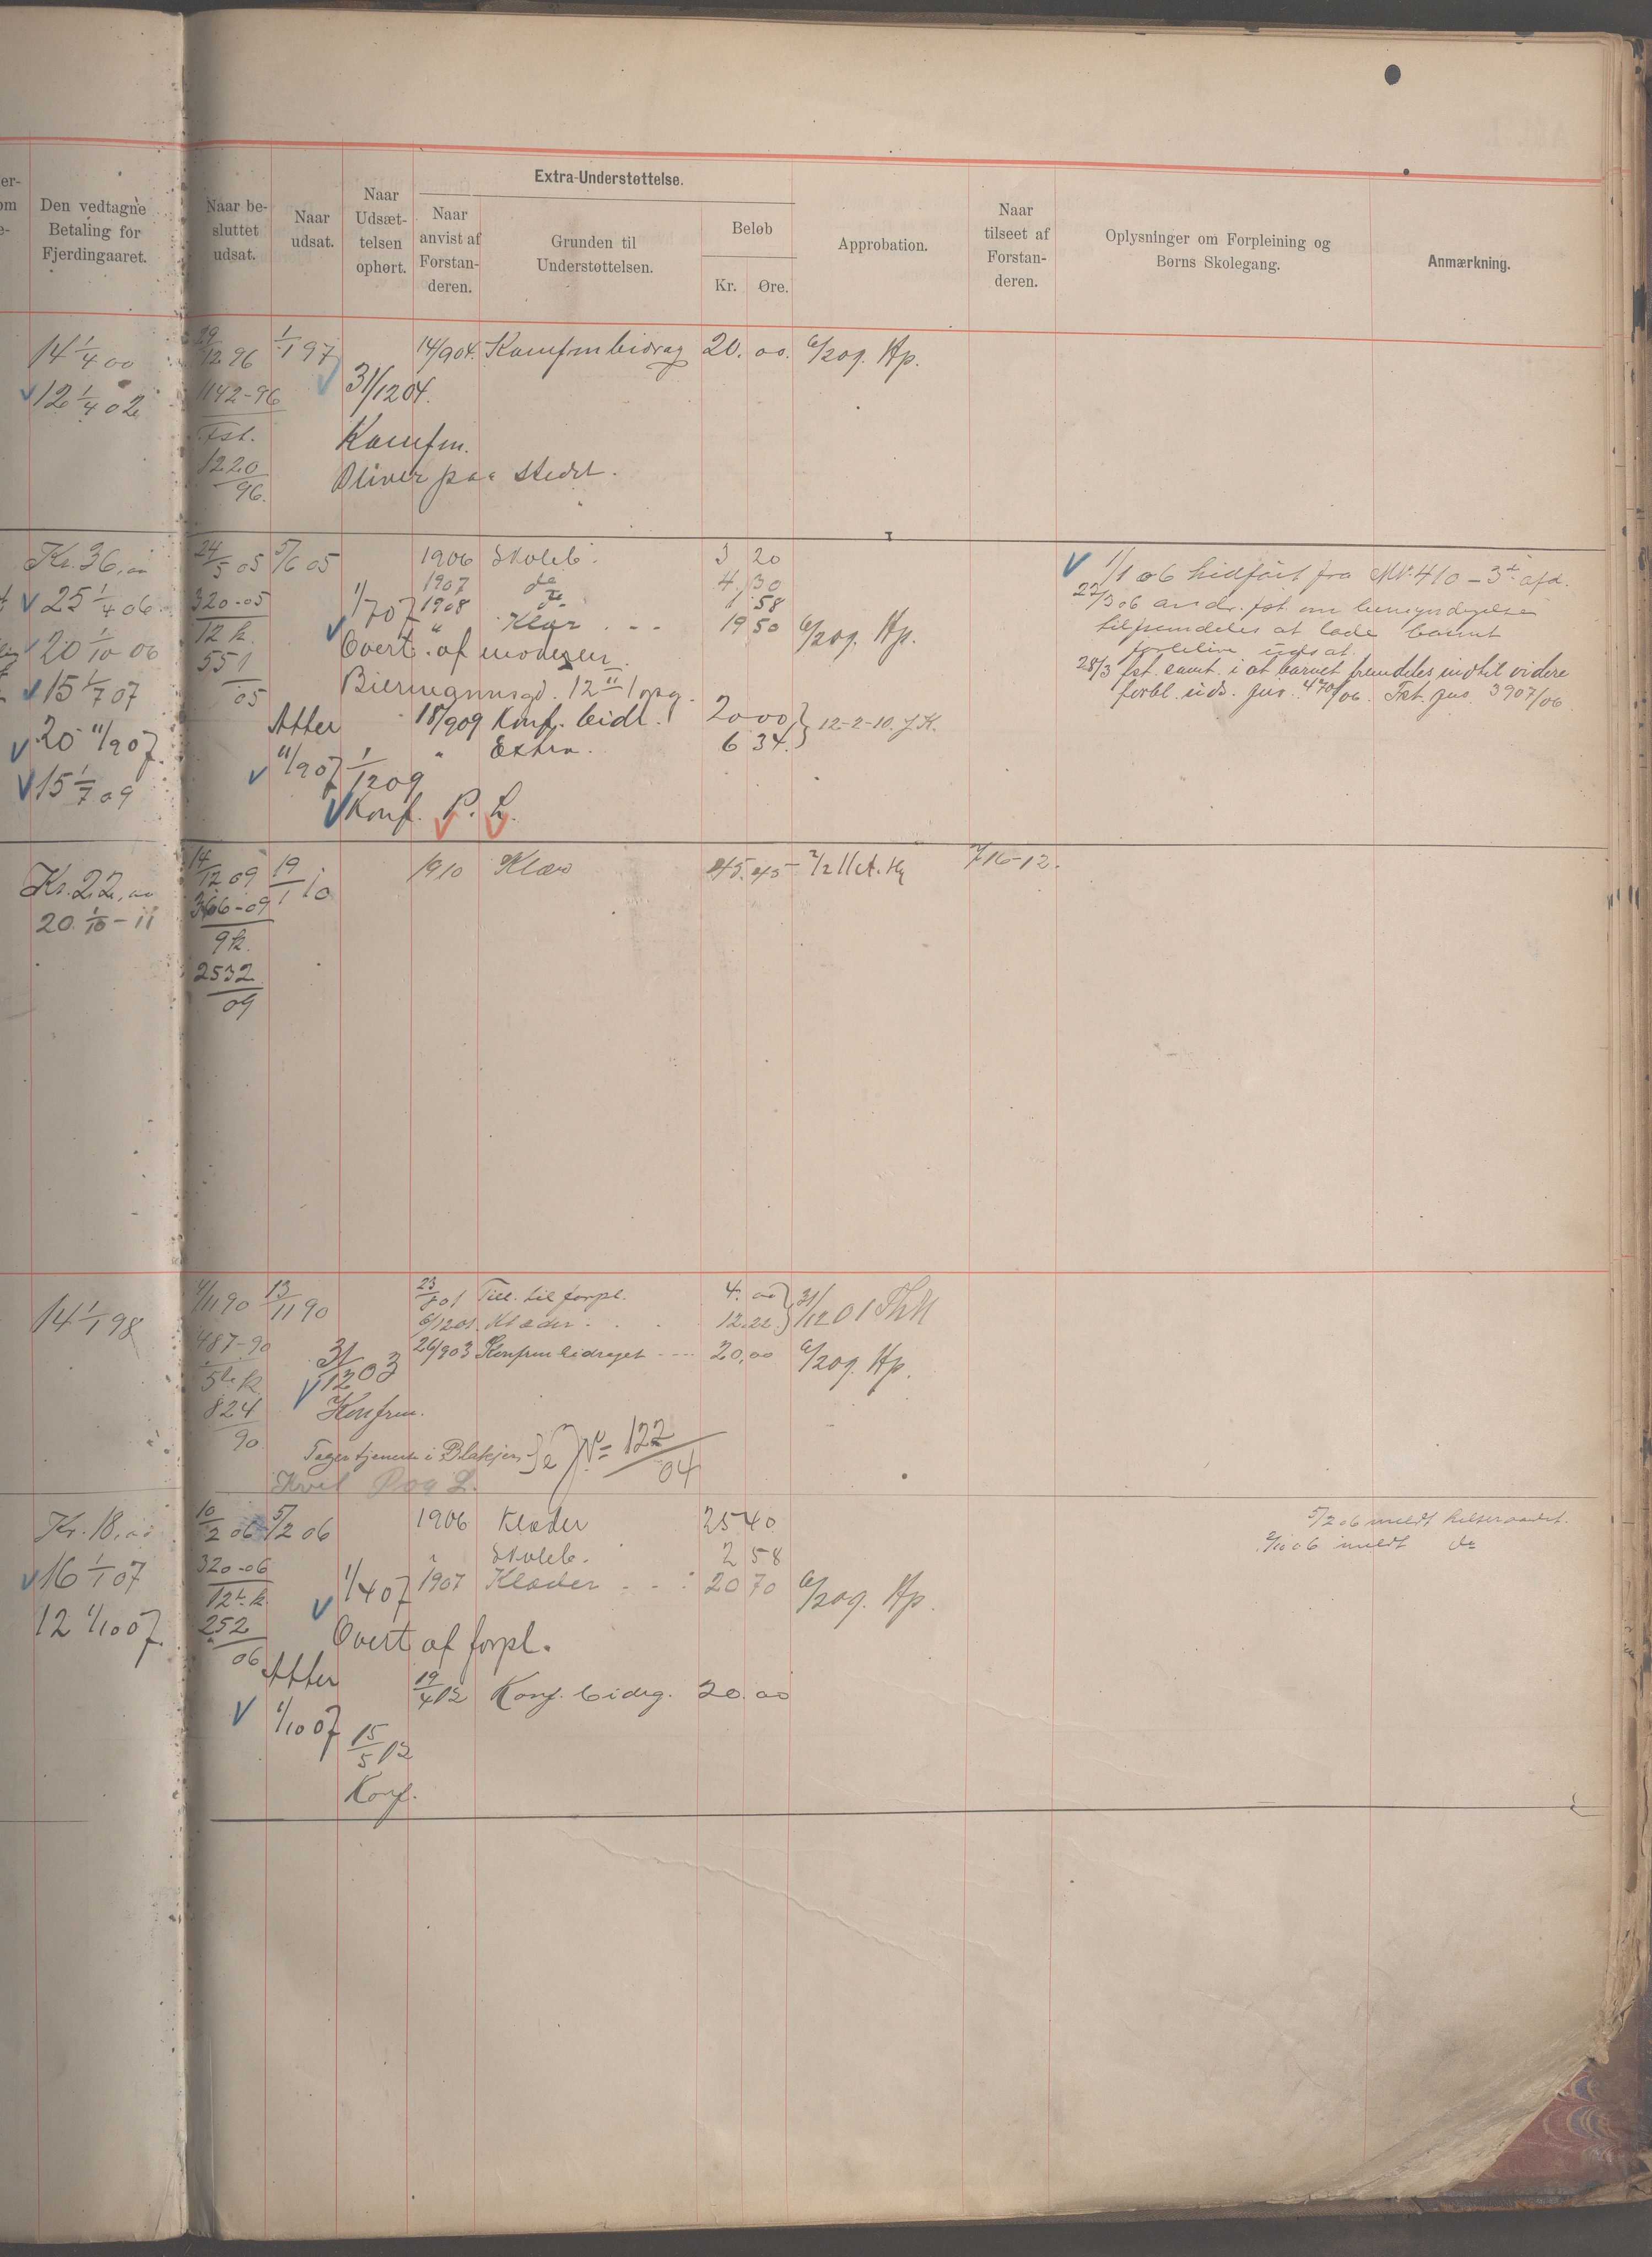 Extra-Understøttelse.
Den vedtagne
Betaling for
Fjerdingaaret.
Naar be-
sluttet
udsat.
Naar
udsat.
Naar
Udsæt-
telsen
ophørt.
Naar
anvist af
Forstan-
deren.
Grunden til
Understøttelsen.
Beløb
Kr. Øre.
Approbation.
Naar
tilseet af
Forstan-
deren.
Oplysninger om Forpleining og
Børns Skolegang.
Anmærkning.
14 1/4 00 29/12 96 1/1 97 14/9 04. Konfmbidrag 20. 00. 6/2 09. Hp.
12 1/4 02 1142-96 31/12 04.
Fst. Konfm.
1220/96. Bliver paa stedet.
Kr. 36,00 24/5 05 5/6 05 1906 Skoleb. 3 20
1907 do 4 30
25 1/4 06 320-05 1/7 07 1908 do 1 58
12 k. " Klær 19 50 6/2 09. Hp.
20 1/10 06 551/05 Overt. af moderen.
15 1/7 07 12 II opg.
Atter 18/9 09 Konf. bidr. 20 00 } 12-2-10. J.K.
20 11/9 07. 11/9 07 1/12 09 " Extra. 6 34.
15 1/7 09 Konf. P. L.
1/1 06 hidført fra No. 410 - 3d afd.
22/3 06 fst. om
tilfremdeles at lade barnet
forblive udsat.
28/3 fst. samt. i at barnet fremdeles indtil videre
forbl. uds. jns. 470/06. Fst. jns. 3907/06
Kr. 22,00 14/12 09 19/1 10 1910 Klær 45. 45 7/2 11 A. H 7/16-12.
20. 1/10 - 11 366-09
9 k.
2532/09
14 1/1 98 4/11 90 13/11 90 23/8 01 Till. til forpl. 4. 00 } 31/12 01 ThH
6/12 01. Klæder. 12. 22.
487-90 31/12 03 26/9 03 Konfrmbidraget 20,00 6/2 09. Hp.
5te k. Konfrm.
824/90 Tager tjeneste i Blakjer. Se No 122/04
Kvit P og L.
Kr. 18,00 10/2 06 5/2 06 1906 Klæder 25 40 5/2 06 meldt helseraadet.
" Skoleb. 2 58 2/10 06 meldt do
16 1/1 07 320-06 1/4 07 1907 Klæder 20 70 6/2 09. Hp.
12te k.
12 1/10 07. 252/06 Overt af forpl.
Atter 19/4 12 Konf. bidrg. 20. 00
1/10 07 15/5 12
Konf.